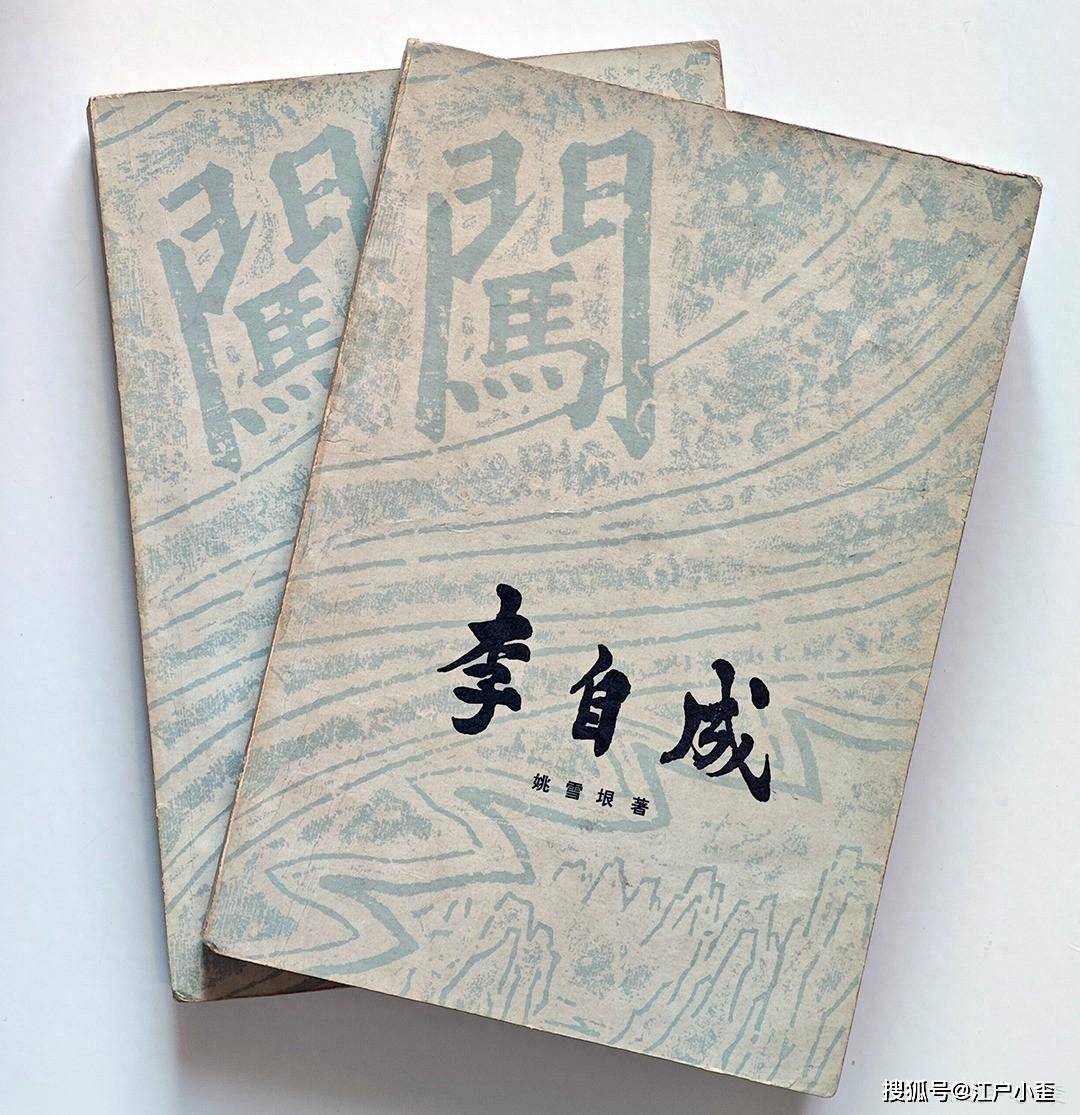 闖
闖
李自成
姚雪垠著
搜狐号@江户小歪